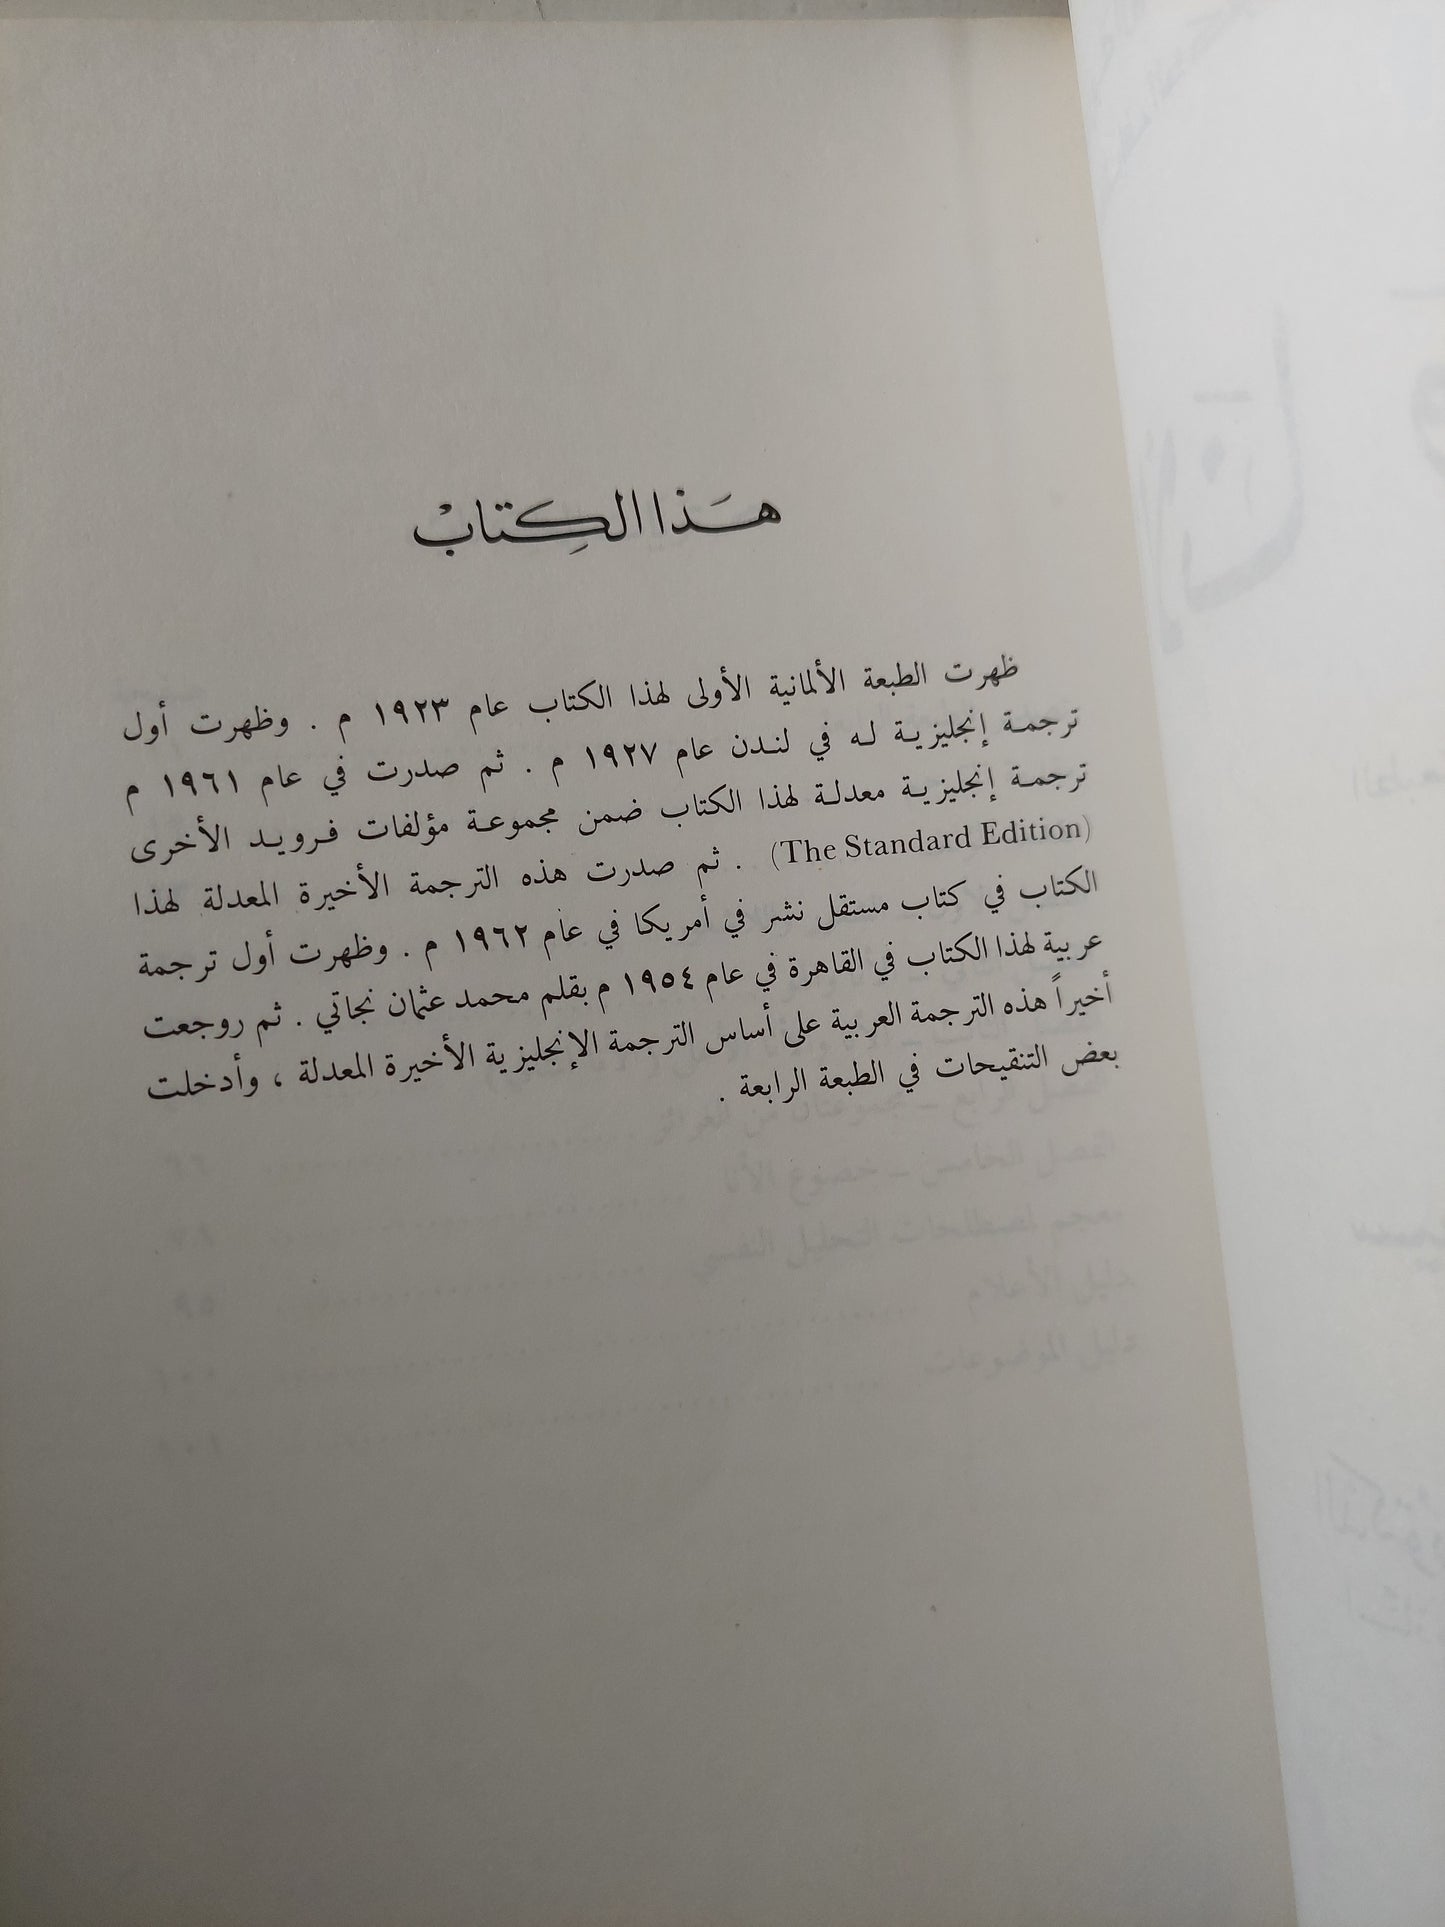 هَذا الكِتابْ
ظهرت الطبعة الألمانية الأولى لهذا الكتاب عام ١٩٢٣ م . وظهرت أول
ترجمة إنجليزية له في لندن عام ١٩٢٧ م . ثم صدرت في عام ١٩٦١ م
ترجمة إنجليزية معدلة لهذا الكتاب ضمن مجموعة مؤلفات فرويد الأخرى
(The Standard Edition) . ثم صدرت هذه الترجمة الأخيرة المعدلة لهذا
الكتاب في كتاب مستقل نشر في أمريكا في عام ١٩٦٢ م . وظهرت أول ترجمة
عربية لهذا الكتاب في القاهرة في عام ١٩٥٤ م بقلم محمد عثمان نجاتي . ثم روجعت
أخيراً هذه الترجمة العربية على أساس الترجمة الإنجليزية الأخيرة المعدلة ، وأدخلت
بعض التنقيحات في الطبعة الرابعة .